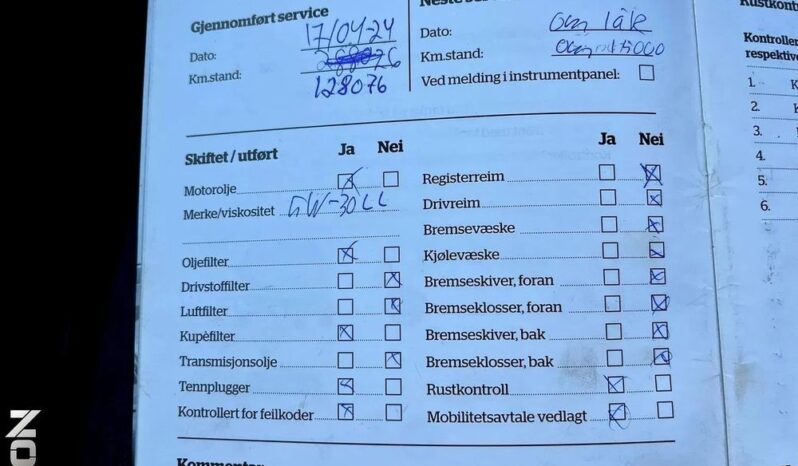 Gjennomført service
Dato: 17/04-24
Km.stand: 128076
Dato: om 1 år
Km.stand: om 15000
Ved melding i instrumentpanel: ☐
Rustkont
Kontroller
respektive
1. K
2. K
3.
4.
5.
6.
Skiftet / utført Ja Nei
Motorolje ☒ ☐
Merke/viskositet 5W-30 LL
Oljefilter ☒ ☐
Drivstoffilter ☐ ☒
Luftfilter ☐ ☒
Kupèfilter ☒ ☐
Transmisjonsolje ☐ ☒
Tennplugger ☒ ☐
Kontrollert for feilkoder ☒ ☐
Ja Nei
Registerreim ☐ ☒
Drivreim ☐ ☒
Bremsevæske ☐ ☒
Kjølevæske ☐ ☒
Bremseskiver, foran ☐ ☒
Bremseklosser, foran ☐ ☒
Bremseskiver, bak ☐ ☒
Bremseklosser, bak ☐ ☒
Rustkontroll ☒ ☐
Mobilitetsavtale vedlagt ☒ ☐